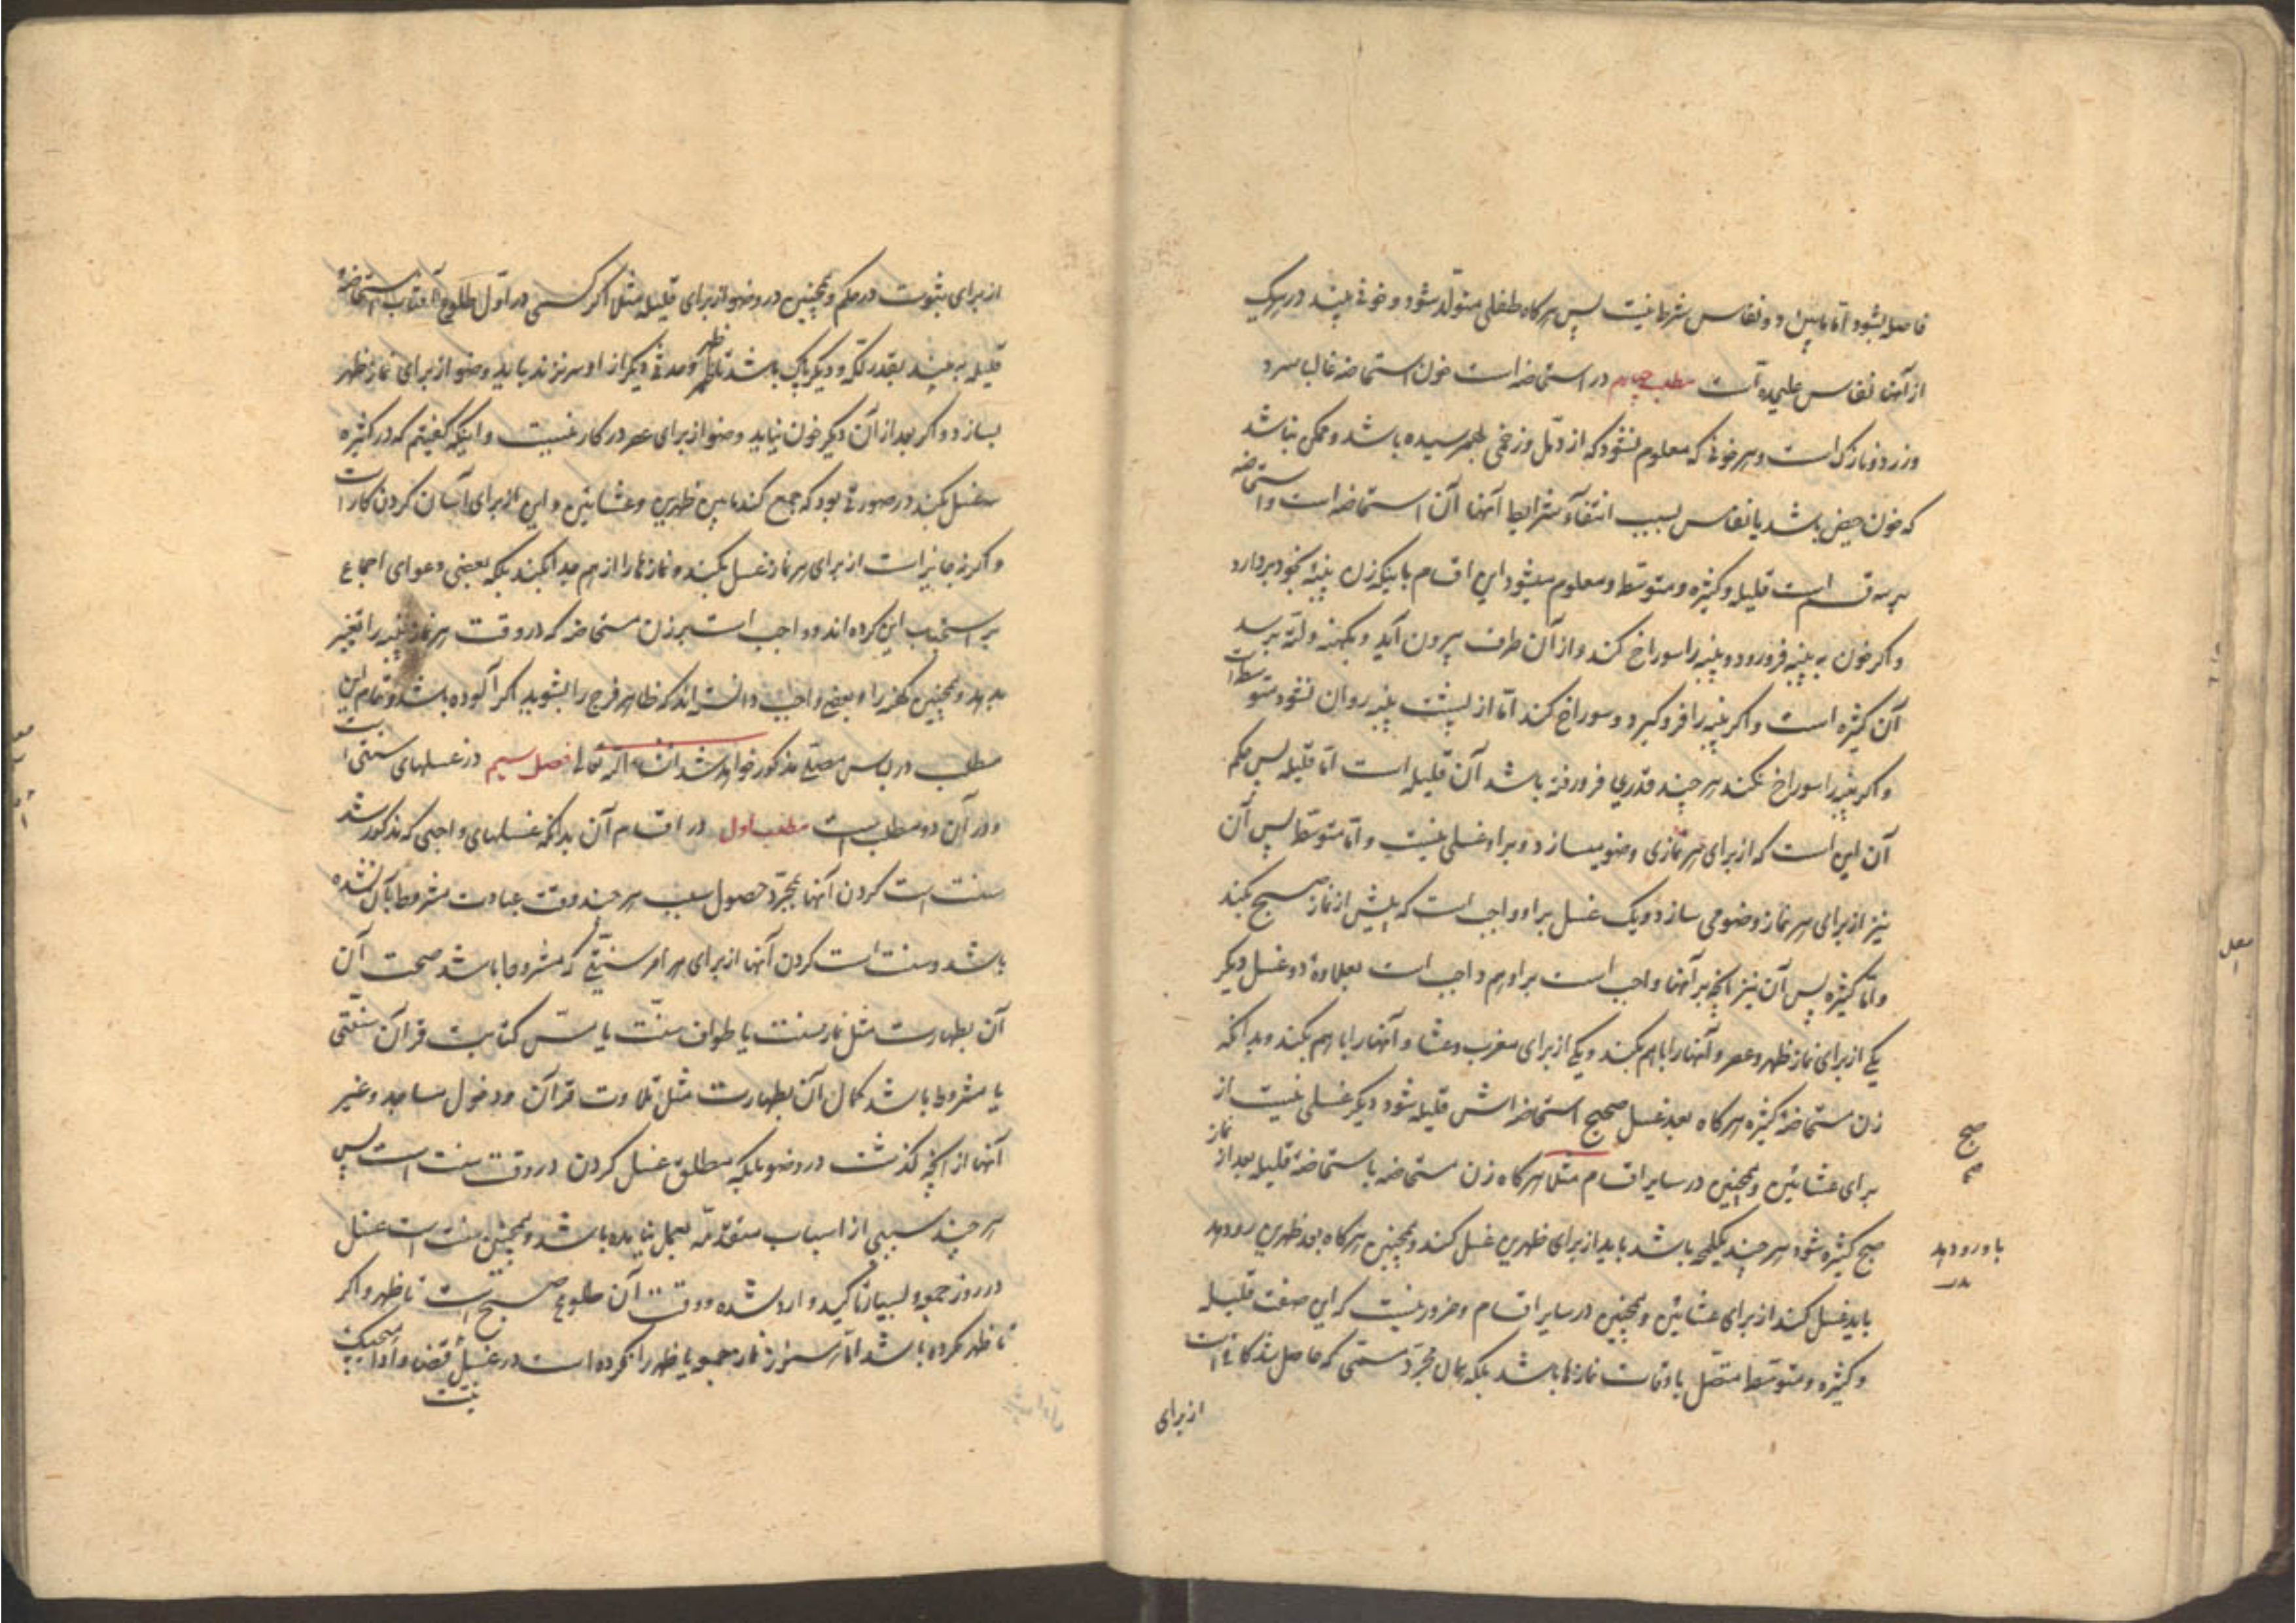 فاصله بشود اما مابین دو نفاس شرط نیست پس هرگاه طفلی متولد شود و خونی بیند در هریک
از آنها نفاس علیحده است مطلب چهارم در استحاضه است خون استحاضه غالبا سرد
و زرد و نازک است و هر خونی که معلوم نشود که از دمل و زخمی بهم رسیده باشد و ممکن نباشد
که خون حیض باشد یا نفاس بسبب انتفاء شرایط آنها آن استحاضه است و استحاضه
بر سه قسم است قلیله و کثیره و متوسطه و معلوم میشود این اقسام باینکه زن پنبه بخود بردارد
و اگر خون به پنبه فرو رود و پنبه را سوراخ کند و از آن طرف بیرون آید و بکهنه و لته برسد
آن کثیره است و اگر پنبه را فرو گیرد و سوراخ کند اما از پشت پنبه روان نشود متوسطه است
و اگر پنبه را سوراخ نکند هر چند قدری فرو رفته باشد آن قلیله است اما قلیله پس حکم
آن این است که از برای هر نمازی وضو میسازد و بر او غسلی نیست و اما متوسطه پس آن
نیز از برای هر نماز وضو می سازد و یک غسل بر او واجب است که پیش از نماز صبح بکند
و اما کثیره پس آن نیز آنچه بر آنها واجب است بر او هم واجب است بعلاوۀ دو غسل دیگر
یکی از برای نماز ظهر و عصر و آنها را باهم بکند و یکی از برای مغرب و عشا و آنها را باهم بکند و بدانکه
زن مستحاضۀ کثیره هرگاه بعد غسل صحیح استحاضه اش قلیله شود دیگر غسلی نیست از
برای عشائین و همچنین در سایر اقسام مثلا هرگاه زن مستحاضه باستحاضۀ قلیله بعد از نماز
صبح کثیره شود هر چند یکلمحه باشد باید از برای ظهرین غسل کند و همچنین هرگاه بعد ظهرین رو دهد
باید غسل کند از برای عشائین و همچنین در سایر اقسام و ضرور نیست که این صفت قلیله
و کثیره و متوسطه متصل باوقات نمازها باشد بلکه همان مجرد مستمی که حاصل شد کافی است
از برای
صبح
با و رو دهد
از برای ثبوت در حکم و همچنین در وضو از برای قلیله مثلا اگر کسی در اول طلوع آفتاب استحاضه
قلیله به بیند بقدر تکه و دیگر پاک باشد تا ظهر و مدتی دیگر از او سر نزند باید وضو از برای نماز ظهر
بسازد و اگر بعد از آن دیگر خون نیاید وضو از برای عصر در کار نیست و اینکه گفتیم که در کثیره
غسل بکند در صورتی بود که جمع کند مابین ظهرین و عشائین و این از برای آسان کردن کار است
و اگر نه جایز است از برای هر نماز غسل بکند و نمازها را از هم جدا بکند بلکه بعضی دعوای اجماع
بر استحباب این کرده اند و واجب است بر زن مستحاضه که در وقت هر نماز پنبه را تغییر
بدهد و همچنین کهنه را و بعضی واجب دانسته اند که ظاهر فرج را بشوید اگر آلوده باشد و تمام این
مطلب در لباس مصلی مذکور خواهد شد انشاء الله تعالی فصل سیم در غسلهای سنتی است
و در آن دو مطلب است مطلب اول در اقسام آن بدانکه غسلهای واجبی که مذکور شد
سنت است کردن آنها بمجرد حصول سبب هر چند وقت عبادت مشروط بآن نشده
باشد و سنت است کردن آنها از برای هر امر سنتی که مشروط باشد صحت آن
آن بطهارت مثل نماز سنت یا طواف سنت یا مس کتابت قرآن سنتی
یا مشروط باشد کمال آن بطهارت مثل تلاوت قرآن و دخول مساجد و غیر
آنها از آنچه گذشت در وضو بلکه مطلق غسل کردن در وقت سنت است پس
هر چند سببی از اسباب متقدمه بعمل نیامده باشد و همچنین سنت است غسل
در روز جمعه و بسیار تاکید وارد شده و وقت آن طلوع صبح است تا ظهر و اگر
تا ظهر نکرده باشد اما هنوز نماز جمعه یا ظهر را نکرده است در غسل قضا و ادا
نیت